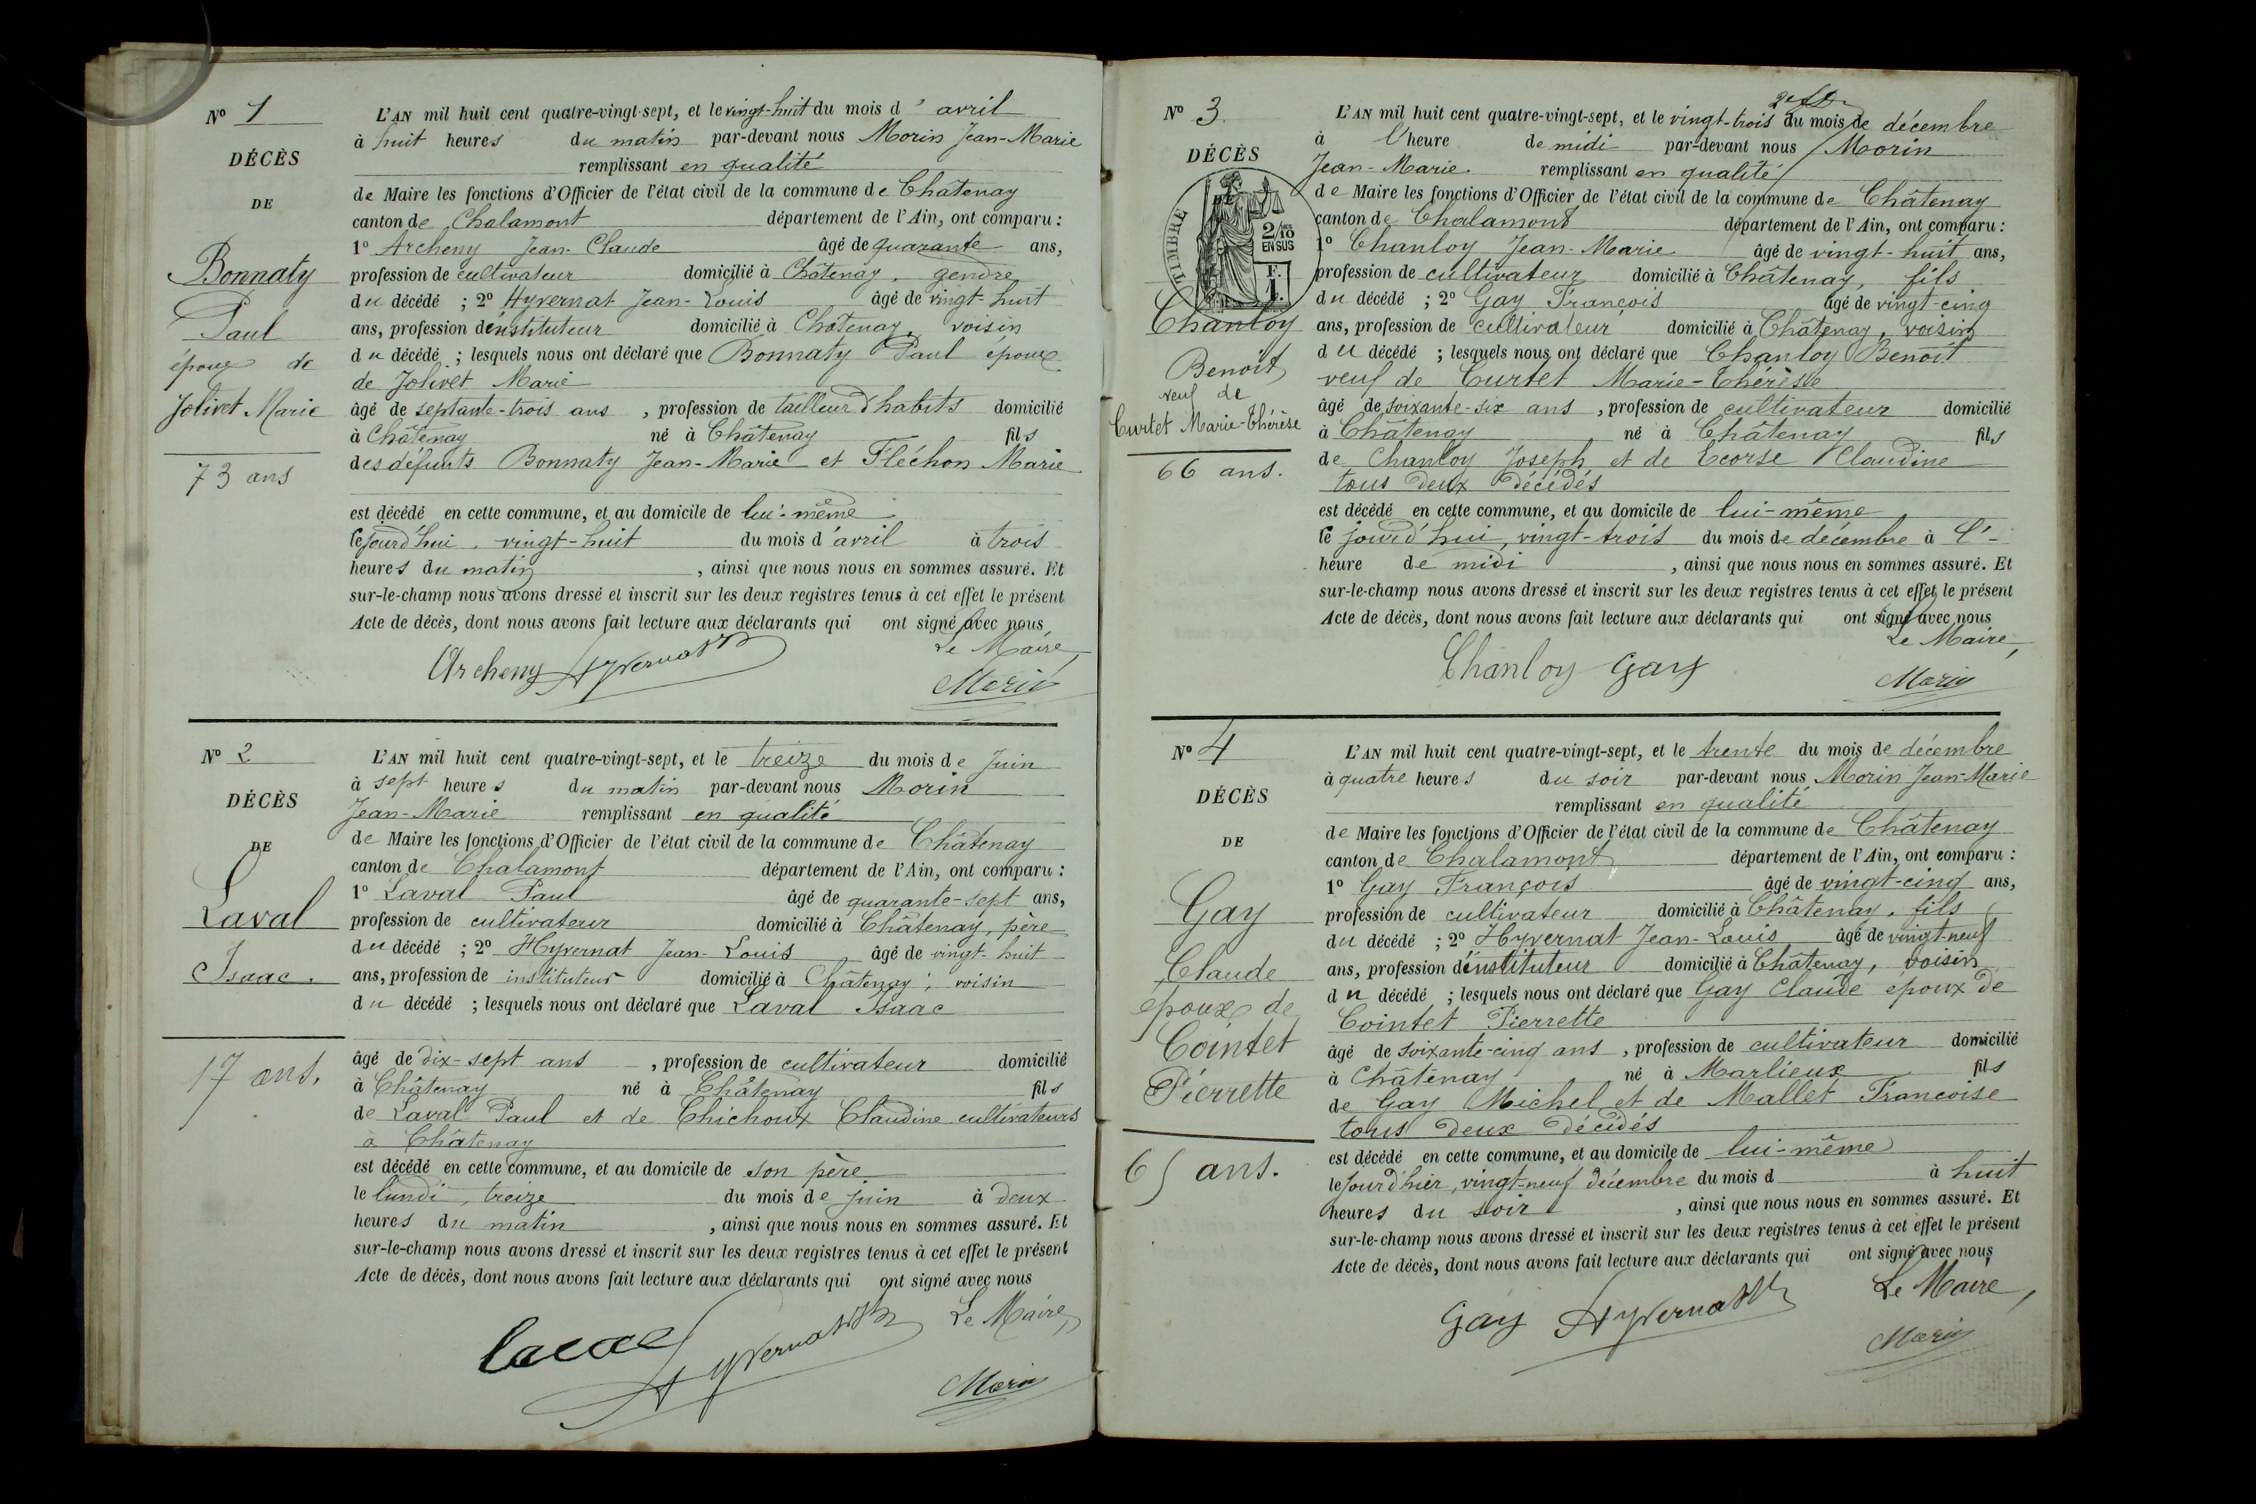 N° 1
DÉCÈS
DE
Bonnaty
Paul
époux de
Jolivet Marie
73 ans
L'AN mil huit cent quatre-vingt-sept, et le vingt-huit du mois d'avril
à huit heures du matin par-devant nous Morin Jean-Marie
remplissant en qualité
de Maire les fonctions d'Officier de l'état civil de la commune de Châtenay
canton de Chalamont département de l'Ain, ont comparu :
1° Archeny Jean-Claude âgé de quarante ans,
profession de cultivateur domicilié à Châtenay, gendre
du décédé ; 2° Hyvernat Jean-Louis âgé de vingt-huit
ans, profession d'instituteur domicilié à Châtenay, voisin
du décédé ; lesquels nous ont déclaré que Bonnaty Paul époux
de Jolivet Marie
âgé de septante-trois ans, profession de tailleur d'habits domicilié
à Châtenay né à Châtenay fils
des défunts Bonnaty Jean-Marie et Fléchon Marie
est décédé en cette commune, et au domicile de lui-même
le jourd'hui, vingt-huit du mois d'avril à trois
heures du matin, ainsi que nous nous en sommes assuré. Et
sur-le-champ nous avons dressé et inscrit sur les deux registres tenus à cet effet le présent
Acte de décès, dont nous avons fait lecture aux déclarants qui ont signé avec nous
Le Maire,
Archeny Hyvernat Morin
N° 2
DÉCÈS
DE
Laval
Isaac.
17 ans.
L'AN mil huit cent quatre-vingt-sept, et le treize du mois de Juin
à sept heures du matin par-devant nous Morin
Jean-Marie remplissant en qualité
de Maire les fonctions d'Officier de l'état civil de la commune de Châtenay
canton de Chalamont département de l'Ain, ont comparu :
1° Laval Paul âgé de quarante-sept ans,
profession de cultivateur domicilié à Châtenay, père
du décédé ; 2° Hyvernat Jean-Louis âgé de vingt-huit
ans, profession de instituteur domicilié à Châtenay, voisin
du décédé ; lesquels nous ont déclaré que Laval Isaac
âgé de dix-sept ans, profession de cultivateur domicilié
à Châtenay né à Châtenay fils
de Laval Paul et de Chichoux Claudine cultivateurs
à Châtenay
est décédé en cette commune, et au domicile de son père
le lundi, treize du mois de juin à deux
heures du matin, ainsi que nous nous en sommes assuré. Et
sur-le-champ nous avons dressé et inscrit sur les deux registres tenus à cet effet le présent
Acte de décès, dont nous avons fait lecture aux déclarants qui ont signé avec nous
Le Maire,
Laval Hyvernat Morin
N° 3.
DÉCÈS
DE
TIMBRE
2/10 EN SUS
F.
1
Chanloy
Benoît
veuf de
Curtet Marie-Thérèse
66 ans.
L'AN mil huit cent quatre-vingt-sept, et le vingt-trois du mois de décembre
à l'heure de midi par-devant nous Morin
Jean-Marie remplissant en qualité
de Maire les fonctions d'Officier de l'état civil de la commune de Châtenay
canton de Chalamont département de l'Ain, ont comparu :
1° Chanloy Jean-Marie âgé de vingt-huit ans,
profession de cultivateur domicilié à Châtenay, fils
du décédé ; 2° Gay François âgé de vingt-cinq
ans, profession de cultivateur domicilié à Châtenay, voisin
du décédé ; lesquels nous ont déclaré que Chanloy Benoît
veuf de Curtet Marie-Thérèse
âgé de soixante-six ans, profession de cultivateur domicilié
à Châtenay né à Châtenay fils
de Chanloy Joseph et de Ecorse Claudine
tous deux décédés
est décédé en cette commune, et au domicile de lui-même
le jourd'hui, vingt-trois du mois de décembre à l'-
heure de midi, ainsi que nous nous en sommes assuré. Et
sur-le-champ nous avons dressé et inscrit sur les deux registres tenus à cet effet le présent
Acte de décès, dont nous avons fait lecture aux déclarants qui ont signé avec nous
Le Maire,
Chanloy Gay Morin
N° 4
DÉCÈS
DE
Gay
Claude
époux de
Cointet
Pierrette
65 ans.
L'AN mil huit cent quatre-vingt-sept, et le trente du mois de décembre
à quatre heures du soir par-devant nous Morin Jean-Marie
remplissant en qualité
de Maire les fonctions d'Officier de l'état civil de la commune de Châtenay
canton de Chalamont département de l'Ain, ont comparu :
1° Gay François âgé de vingt-cinq ans,
profession de cultivateur domicilié à Châtenay, fils
du décédé ; 2° Hyvernat Jean-Louis âgé de vingt-neuf
ans, profession d'instituteur domicilié à Châtenay, voisin
du décédé ; lesquels nous ont déclaré que Gay Claude époux de
Cointet Pierrette
âgé de soixante-cinq ans, profession de cultivateur domicilié
à Châtenay né à Marlieux fils
de Gay Michel et de Mallet Francoise
tous deux décédés
est décédé en cette commune, et au domicile de lui-même
le jour d'hier, vingt-neuf décembre du mois d à huit
heures du soir, ainsi que nous nous en sommes assuré. Et
sur-le-champ nous avons dressé et inscrit sur les deux registres tenus à cet effet le présent
Acte de décès, dont nous avons fait lecture aux déclarants qui ont signé avec nous
Le Maire,
Gay Hyvernat Morin